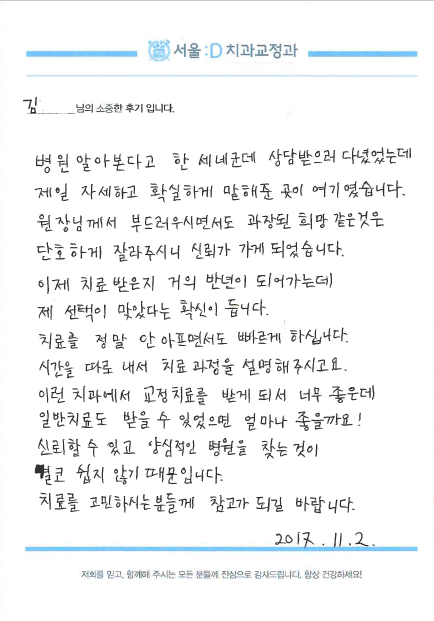 서울:D 치과교정과
김 님의 소중한 후기 입니다.
병원 알아본다고 한 세네군데 상담받으러 다녔었는데
제일 자세하고 확실하게 말해준 곳이 여기였습니다.
원장님께서 부드러우시면서도 과장된 희망 같은것은
단호하게 잘라주시니 신뢰가 가게 되었습니다.
이제 치료 받은지 거의 반년이 되어가는데
제 선택이 맞았다는 확신이 듭니다.
치료를 정말 안아프면서도 빠르게 하십니다.
시간을 따로 내서 치료 과정을 설명해주시고요.
이런 치과에서 교정치료를 받게 되서 너무 좋은데
일반치료도 받을 수 있었으면 얼마나 좋을까요!
신뢰할 수 있고 양심적인 병원을 찾는것이
결코 쉽지 않기 때문입니다.
치료를 고민하시는분들께 참고가 되길 바랍니다.
2017. 11. 2.
저희를 믿고, 함께해 주시는 모든 분들께 진심으로 감사드립니다. 항상 건강하세요!